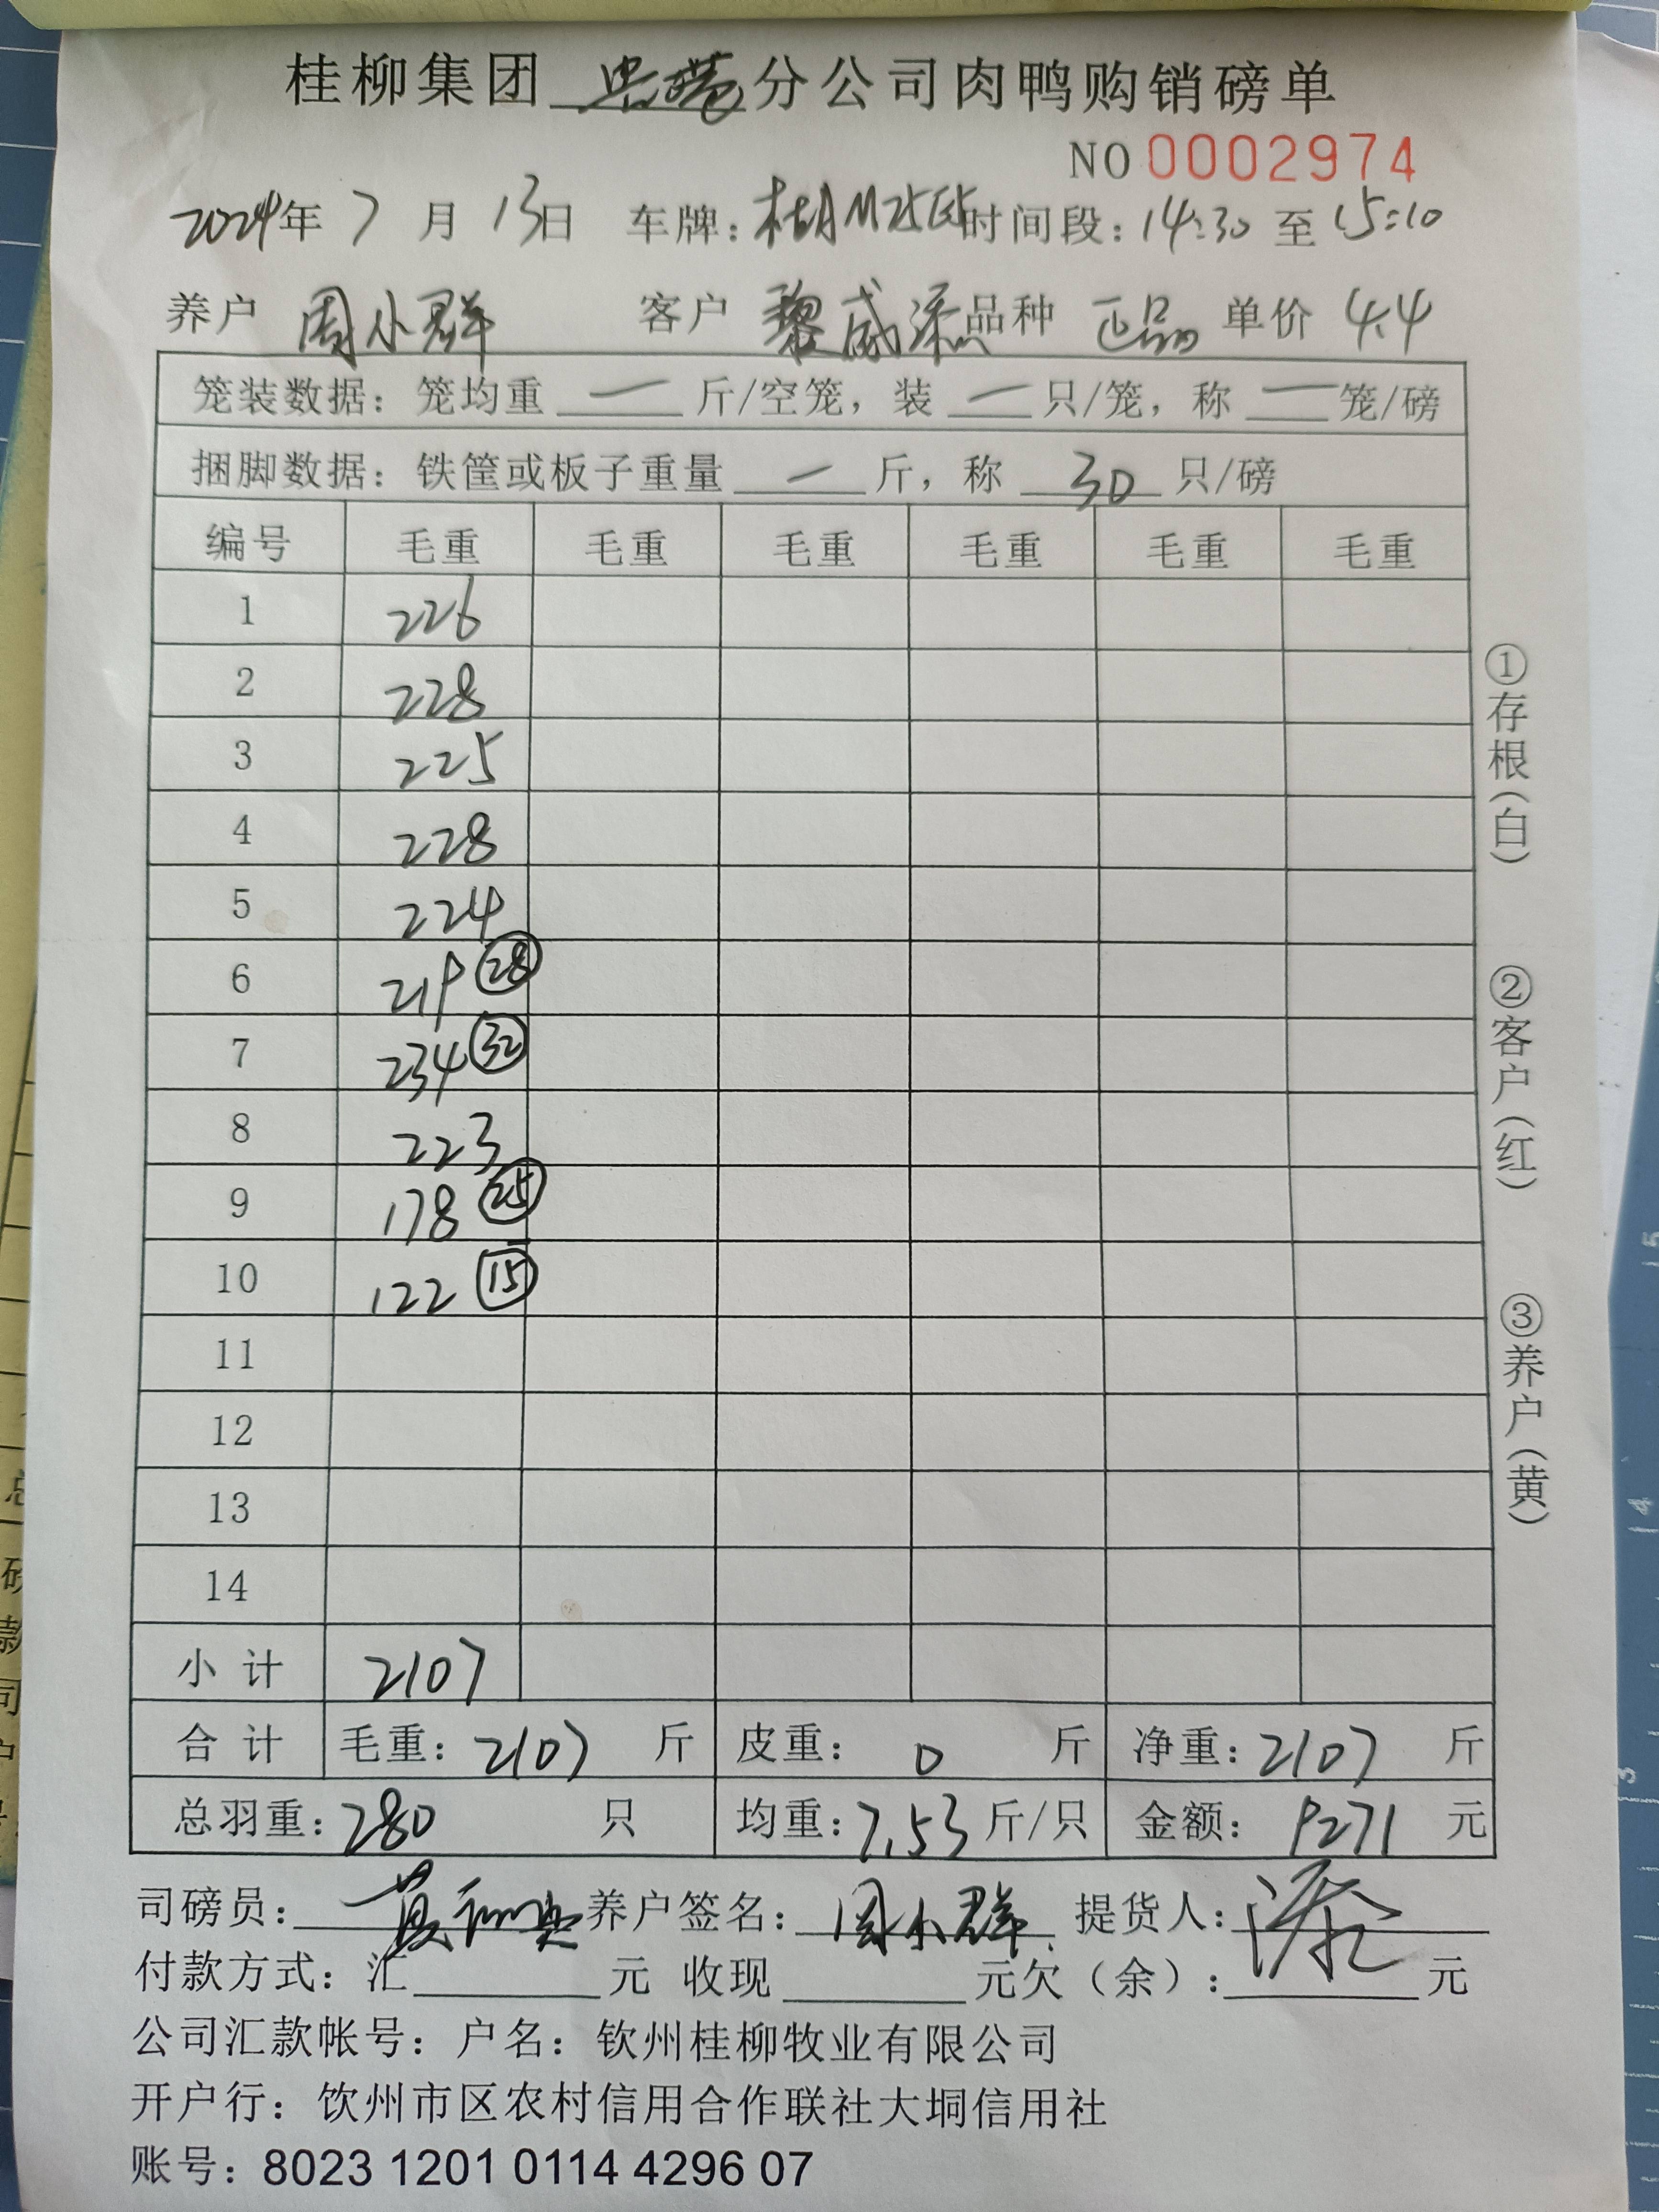 桂柳集团 分公司肉鸭购销磅单
NO 0002974
2024年 7 月 13日 车牌： 时间段：14:30 至 15:10
养户 周小群 客户 黎威添 品种 正品 单价 4.4
笼装数据：笼均重 — 斤/空笼，装 — 只/笼，称 — 笼/磅
捆脚数据：铁筐或板子重量 — 斤，称 30 只/磅
编号 毛重 毛重 毛重 毛重 毛重 毛重
1 226
2 228
3 225
4 228
5 224
6 219 28
7 234 32
8 223
9 178 25
10 122 15
11
12
13
14
小 计 2107
合 计 毛重：2107 斤 皮重：0 斤 净重：2107 斤
总羽重：280 只 均重：7.53 斤/只 金额：9271 元
司磅员： 养户签名：周小群 提货人：添
付款方式：汇 元 收现 元欠（余）： 元
公司汇款帐号：户名：钦州桂柳牧业有限公司
开户行：钦州市区农村信用合作联社大垌信用社
账号：8023 1201 0114 4296 07
①存根（白）
②客户（红）
③养户（黄）